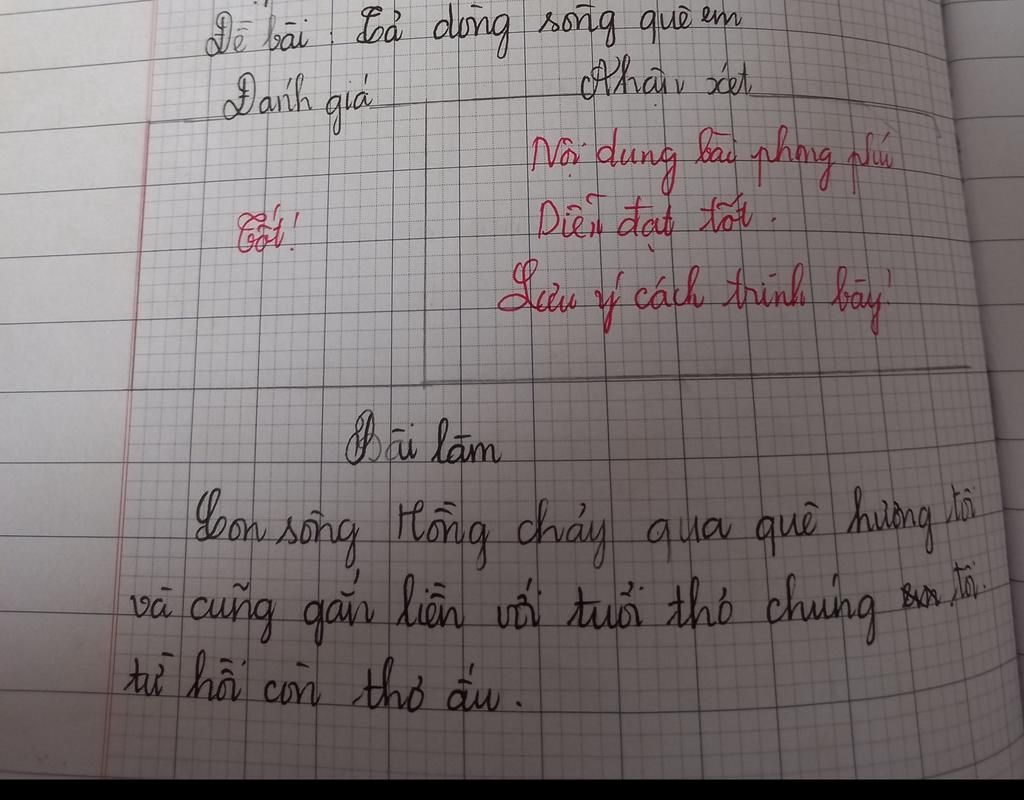 Đề bài: Tả dòng sông quê em
Đánh giá Nhận xét
Nội dung bài phong phú
Tốt! Diễn đạt tốt.
Lưu ý cách trình bày!
Bài làm
Con sông Hồng chảy qua quê hương tôi
và cũng gắn liền với tuổi thơ chúng tôi.
từ hồi còn thơ ấu.